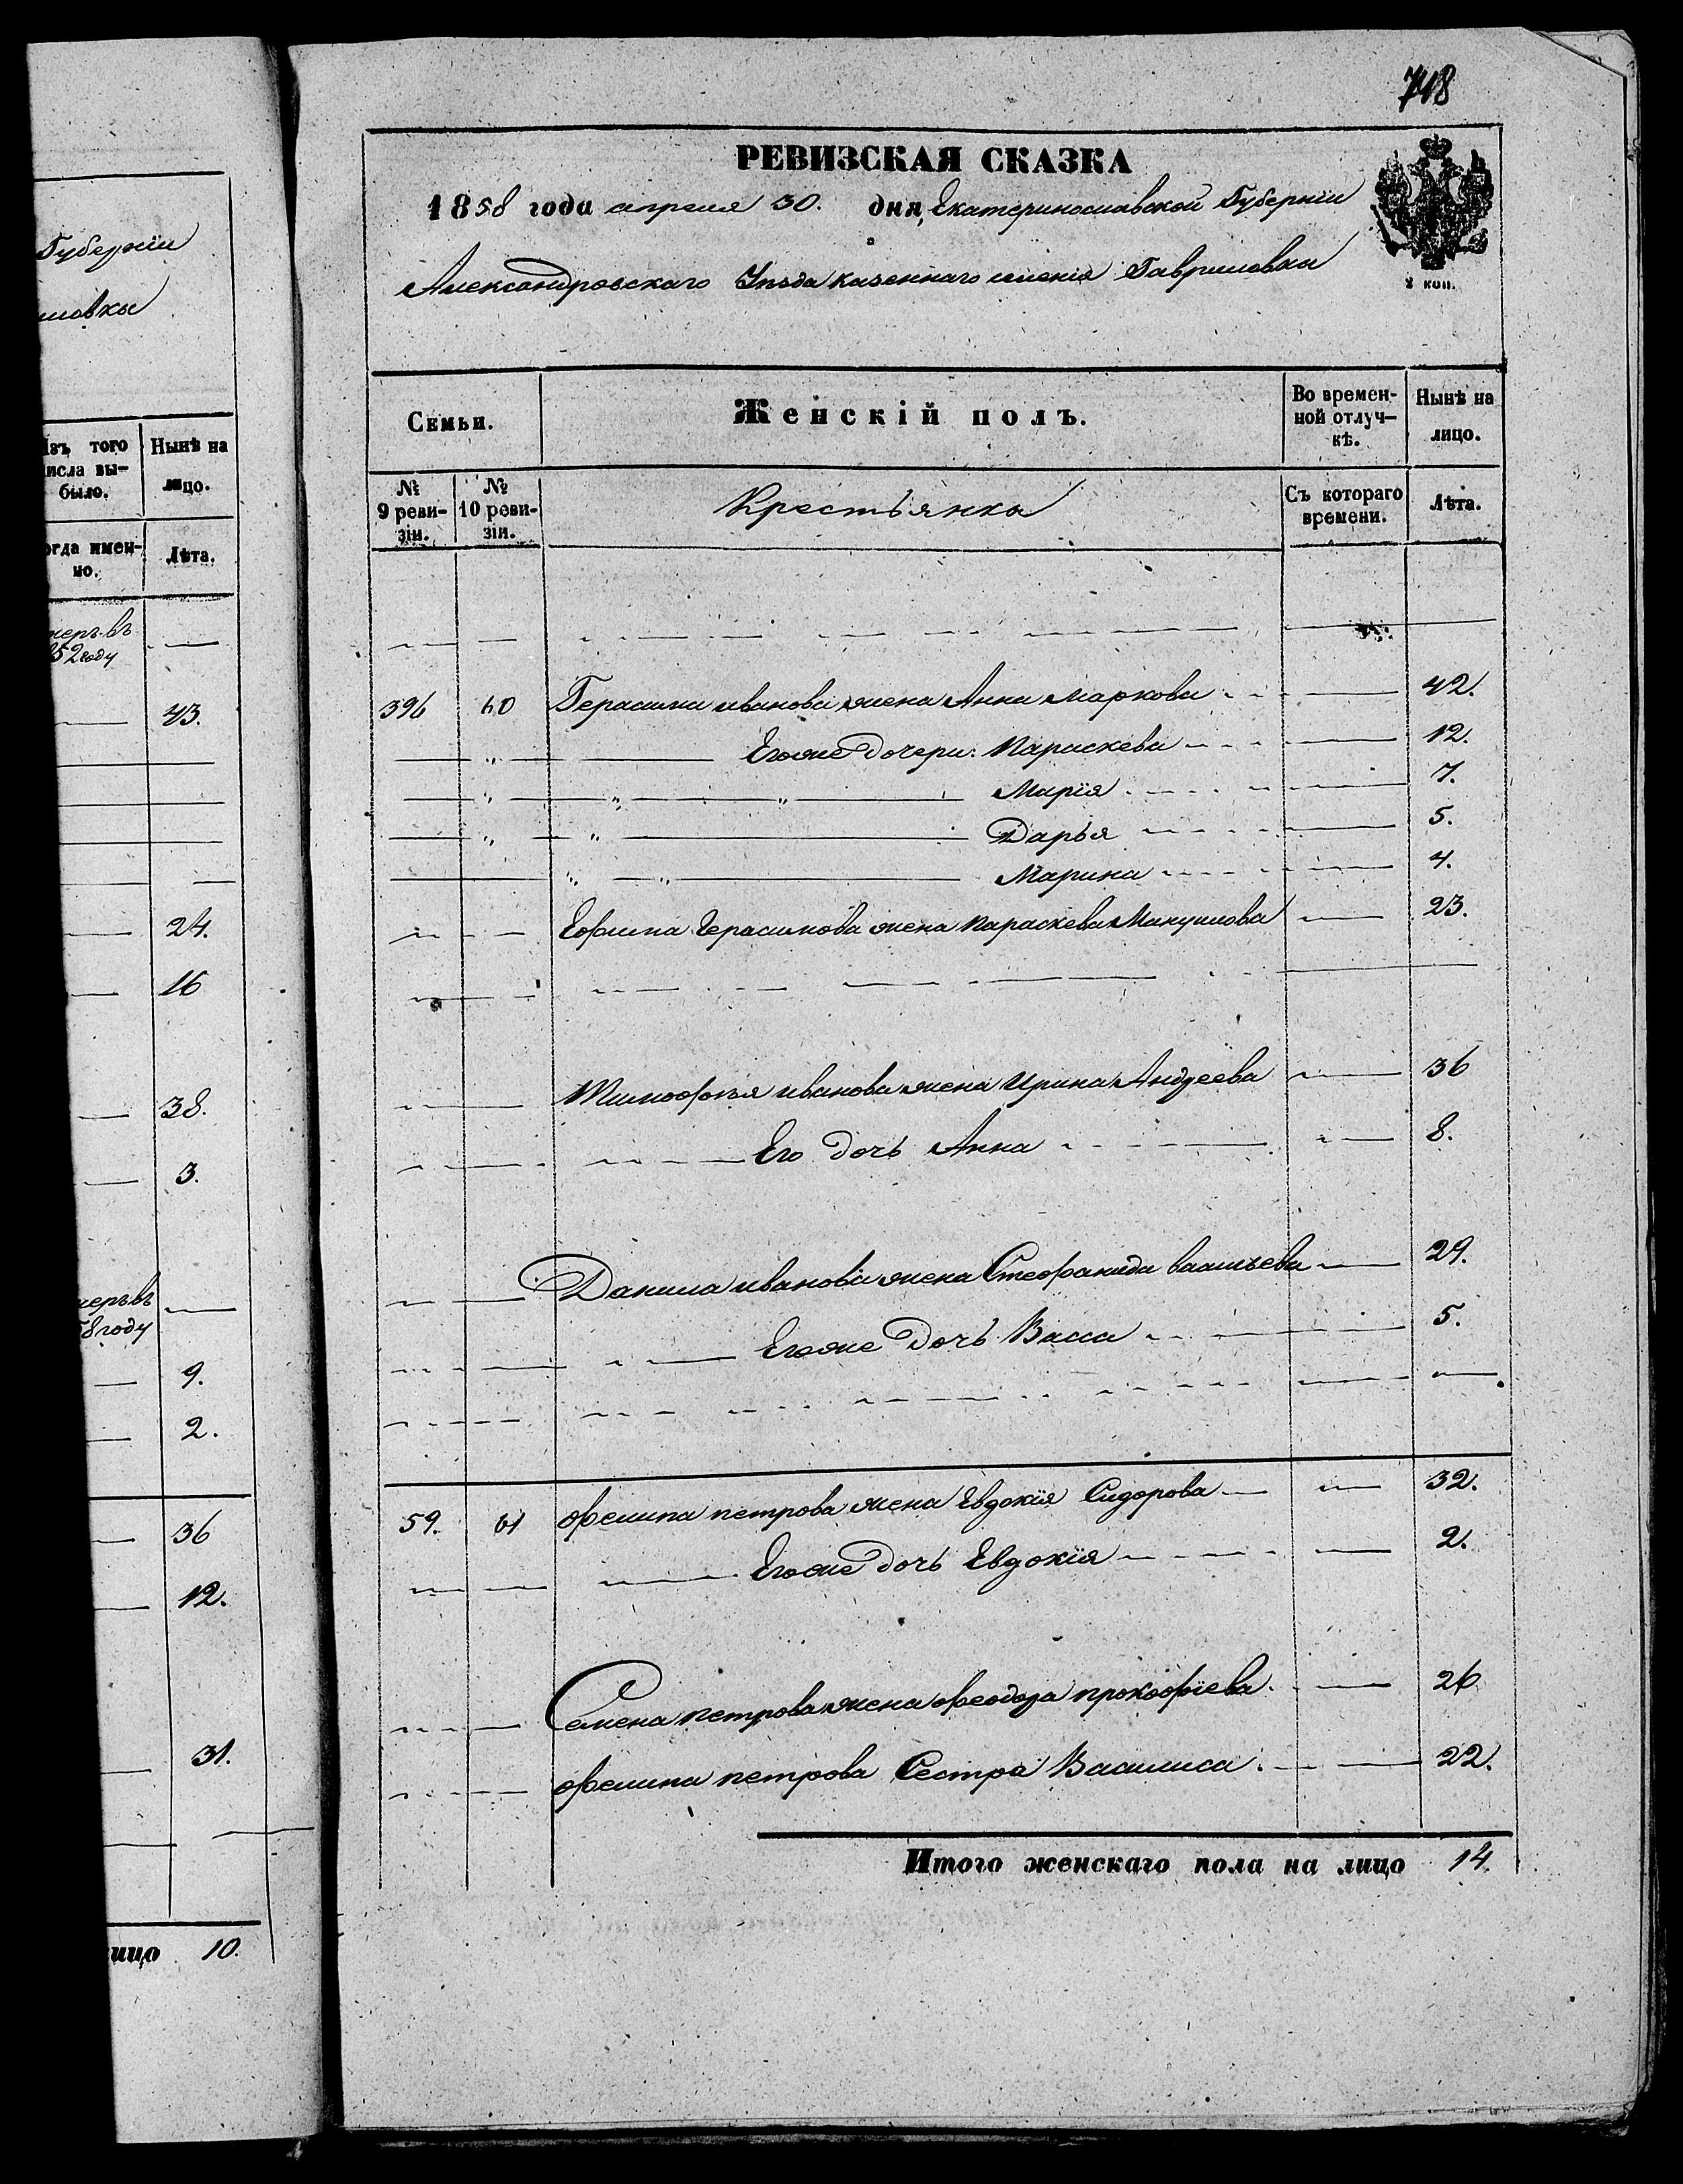 Губерніи
иловки
Изъ того числа вы-
было.
Нынѣ на
лицо.
огда имен-
но.
Лѣта.
меръ въ
852 году
43.
24.
16
38.
3.
меръ въ
58 году
9.
2.
36
12.
31.
лицо 10.
718
РЕВИЗСКАЯ СКАЗКА
1858 года апреля 30. дня, Екатеринославской Губерніи
Александровскаго Уѣзда казеннаго имѣнія Гавриловки
2 коп.
Семьи.
Женскій полъ.
Во времен-
ной отлуч-
кѣ.
Нынѣ на
лицо.
№
9 реви-
зіи.
№
10 реви-
зіи.
Крестьянка
Съ котораго
времени.
Лѣта.
396 60 Герасима иванова жена Анна Маркова 42.
Егоже дочери: Параскева 12.
Марія 7.
Дарья 5.
Марина 4.
Ефима Герасимова жена Параскева Макушова 23.
Тимофѣя иванова жена Ирина Андреева 36
Его дочь Анна 8.
Данила иванова жена Стефанида васильева 29.
Егоже дочь Васса 5.
59. 61 Филипа петрова жена Евдокія Сидорова 32.
Егоже дочь Евдокія 2.
Семена петрова жена феодора прокофіева 26
Филипа петрова Сестра Василиса 22.
Итого женскаго пола на лицо 14.